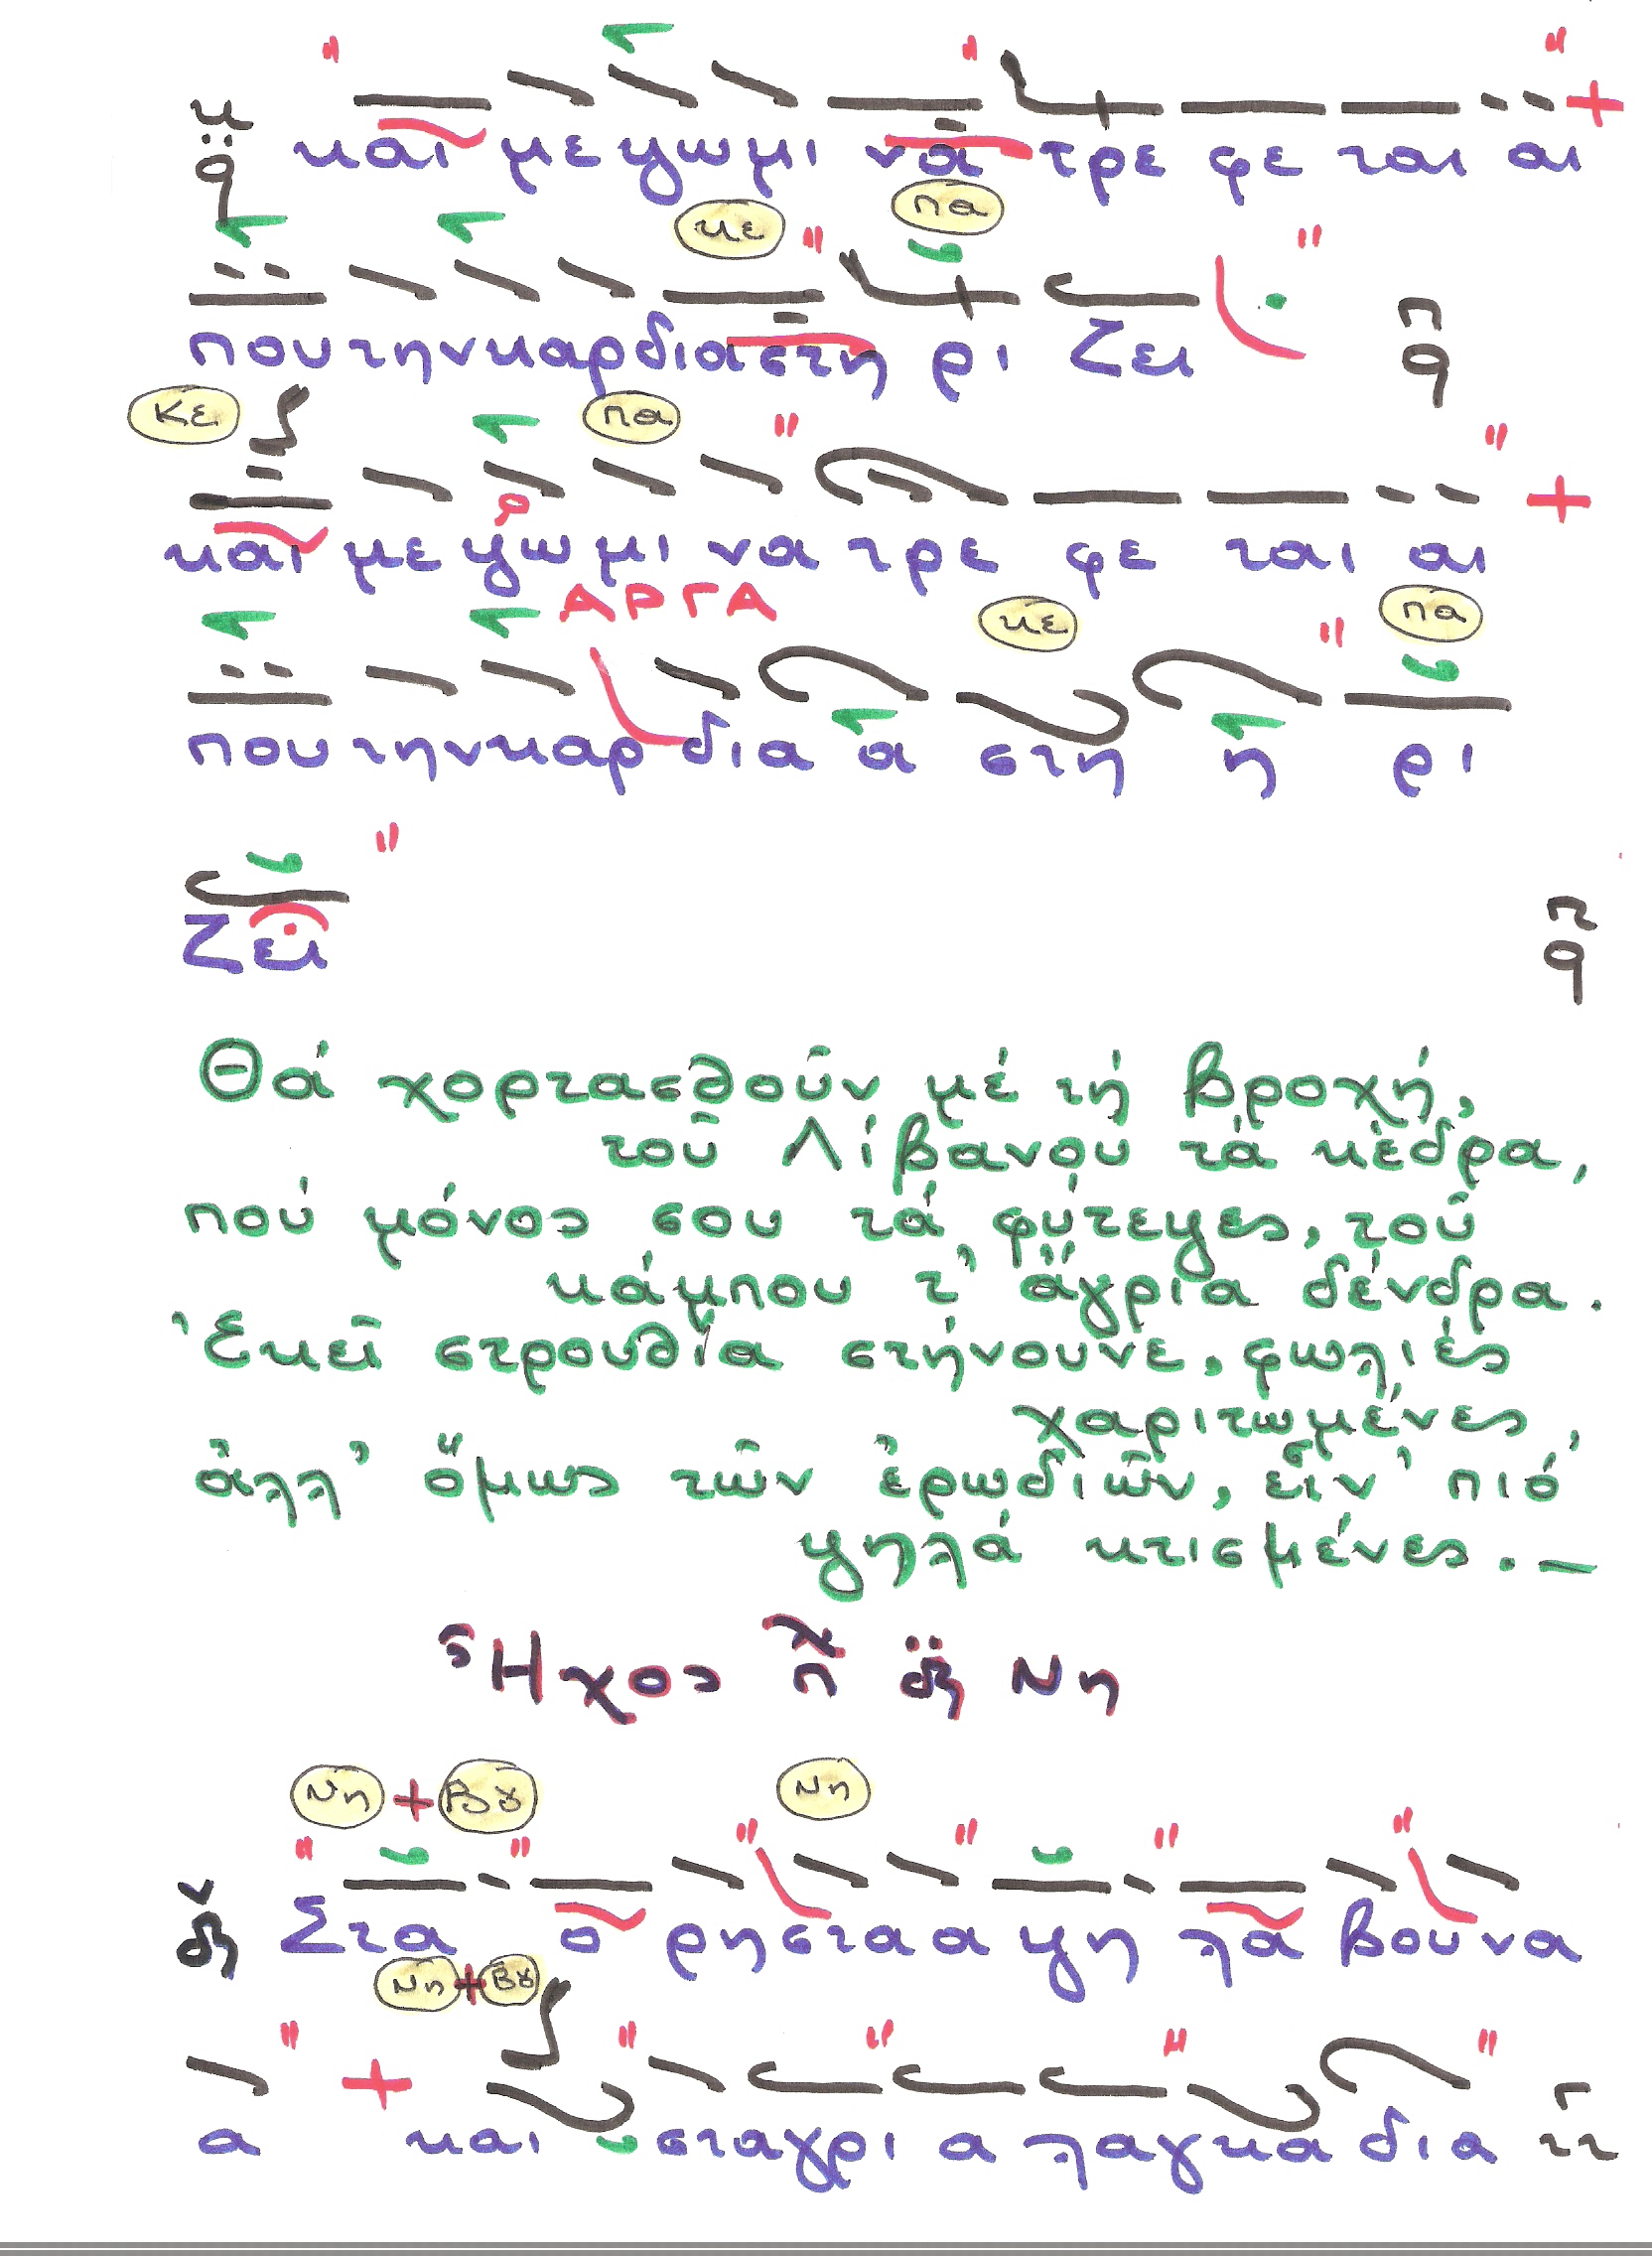 και με ψωμι να τρε φε ται αι
κε πα
που την καρ δια στη ρι ζει
Κε πα
και με ψω μι να τρε φε ται αι
ΑΡΓΑ κε πα
που την καρ δια α στη η ρι
ζει
Θά χορτασθοῦν μέ τή βροχή,
τοῦ Λίβανου τά κέδρα,
πού μόνος σου τά φύτεψες, τοῦ
κάμπου τ' ἄγρια δένδρα.
Ἐκεῖ στρουθία στήνουνε, φωλιές
χαριτωμένες,
ἀλλ' ὅμως τῶν ἐρωδιῶν, εἶν' πιό
ψηλά κτισμένες.—
Ἦχος π δι Νη
Νη + Βου Νη
Στα ο ρη στα α ψη λα βου να
Νη + Βου
α και στ αγρι α λαγκα δια